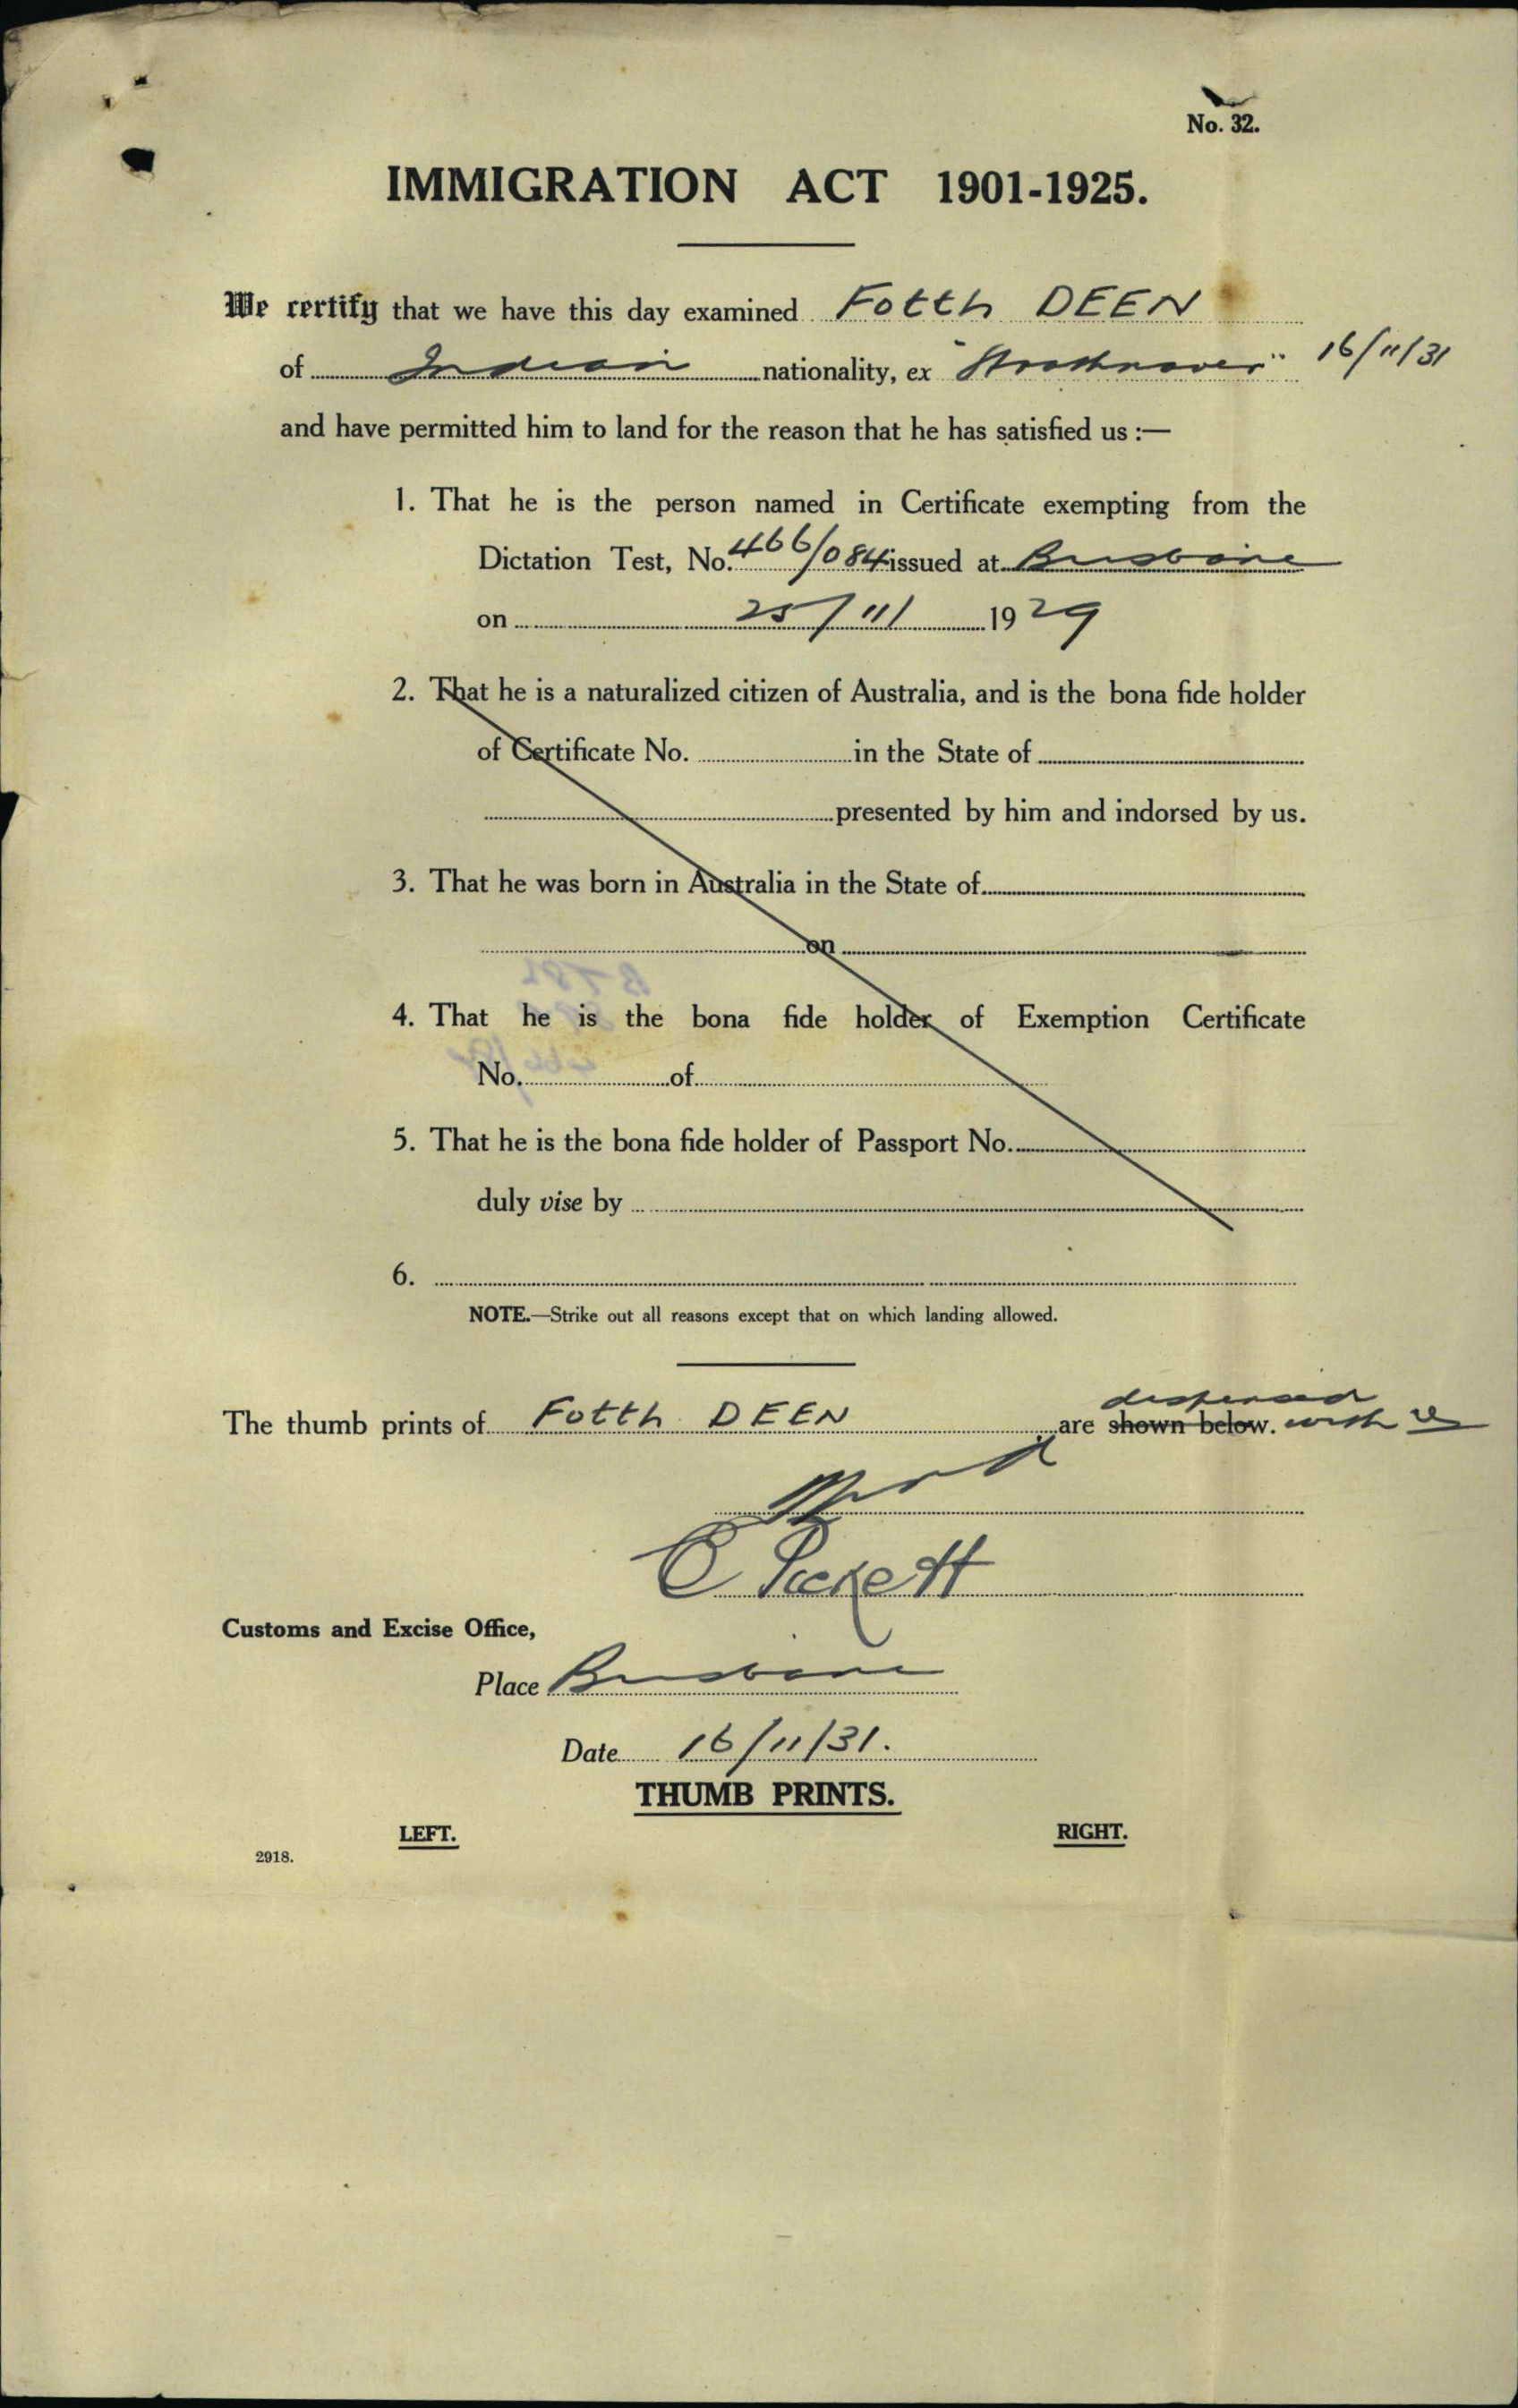 No. 32.
IMMIGRATION ACT 1901-1925.
We certify that we have this day examined Fotth DEEN
of Indian nationality, ex "Strathnaver" 16/11/31
and have permitted him to land for the reason that he has satisfied us :—
1. That he is the person named in Certificate exempting from the
Dictation Test, No. 466/084 issued at Brisbane
on 25/11/ 1929
2. That he is a naturalized citizen of Australia, and is the bona fide holder
of Certificate No. in the State of
presented by him and indorsed by us.
3. That he was born in Australia in the State of
on
4. That he is the bona fide holder of Exemption Certificate
No. of
5. That he is the bona fide holder of Passport No.
duly vise by
6.
NOTE.—Strike out all reasons except that on which landing allowed.
dispensed
The thumb prints of Fotth DEEN are shown below. with
C Pickett
Customs and Excise Office,
Place Brisbane
Date 16/11/31.
THUMB PRINTS.
LEFT. RIGHT.
2918.